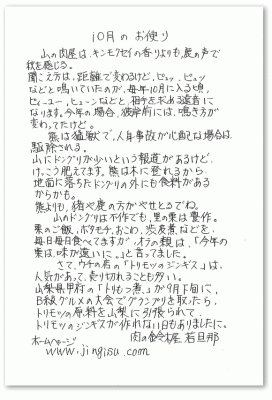 10月のお便り
山の肉屋は、キンモクセイの香りよりも、鹿の声で
秋を感じる。
聞こえ方は、距離で変わるけど、ピッ、ピュッ
などと鳴いていたのが、毎年10月に入る頃、
ピィーユー、ヒューンなどと、相手を求める遠音に
なります。今年の場合、彼岸前には、鳴き方が
変わってたけど。
熊は猛獣で、人身事故が心配な場合は
駆除される。
山にドングリが少いという報道があるけど、
けっこう肥えてます。熊は木に登れるから、
地面に落ちたドングリの外にも食料がある
からかも。
熊よりも、猪や鹿の方がやせとるでね。
山のドングリは不作でも、里の栗は豊作。
栗のご飯、ポタモチ、おこわ、渋皮煮などを、
毎日毎日食べてますが、オラの親は、「今年の
栗は、味が違いに。」と言ってました。
さて、ウチの店の「トリモツのジンギス」は、
人気があって、売り切れることも多い。
山梨県甲府の「トリもつ煮」が9月下旬に、
B級グルメの大会でグランプリを取ったら、
トリモツの原料を山梨に引張られて、
トリモツのジンギスが作れない日もありましたに。
ホームページ 肉の鈴木屋 若旦那
www.jingisu.com